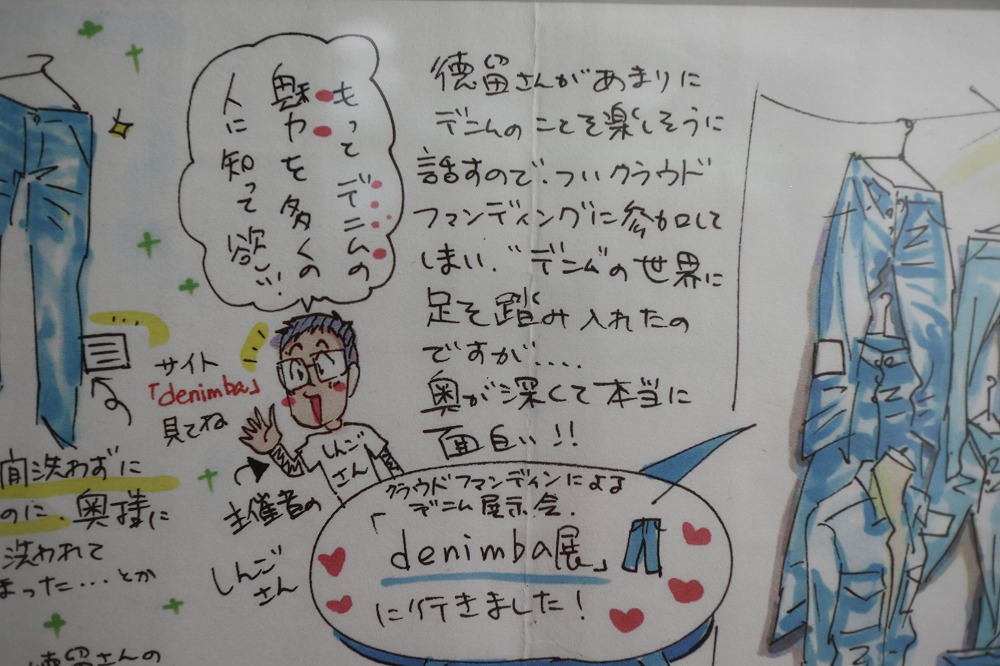 もってデニムの
魅力を多くの
人に知って欲しい!
徳留さんがあまりに
デニムのことを楽しそうに
話すので、ついクラウド
ファンディングに参加して
しまい、"デニム"の世界に
足を踏み入れたの
ですが....
奥が深くて本当に
面白い!!
サイト
「denimba」
見てね
しんご
さん
主催者の
しんご
さん
間洗わずに
のに、奥様に
洗われて
まった...とか
徳留さんの
クラウドファンディンによる
デニム展示会、
「denimba展」
に行きました!